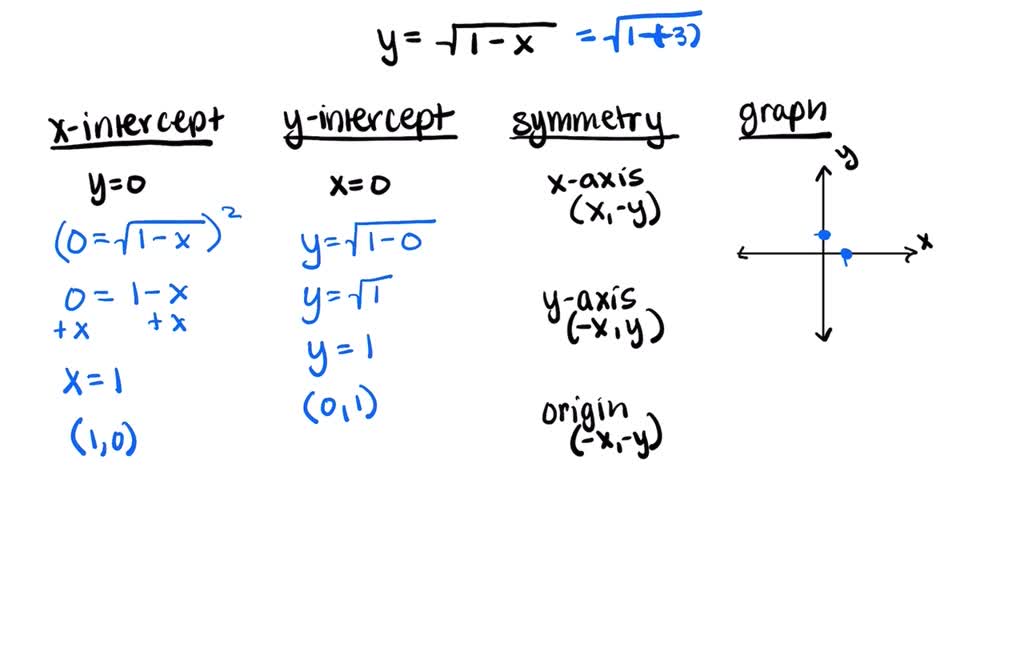 y = √(1 - x) = √(1-(-3))
x-intercept
y=0
(0 = √(1 - x))²
0 = 1 - x
+x +x
x = 1
(1,0)
y-intercept
x=0
y = √(1 - 0)
y = √1
y = 1
(0,1)
symmetry
x-axis
(x,-y)
y-axis
(-x,y)
origin
(-x,-y)
graph
y
x